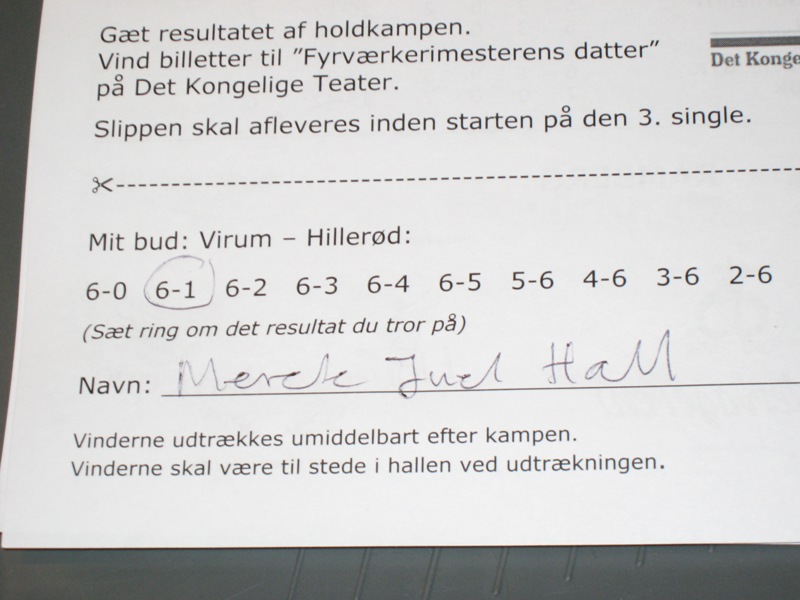 Gæt resultatet af holdkampen.
Vind billetter til ”Fyrværkerimesterens datter”
på Det Kongelige Teater.
Det Konge
Slippen skal afleveres inden starten på den 3. single.
Mit bud: Virum – Hillerød:
6-0 6-1 6-2 6-3 6-4 6-5 5-6 4-6 3-6 2-6
(Sæt ring om det resultat du tror på)
Navn: Merete Juel Hall
Vinderne udtrækkes umiddelbart efter kampen.
Vinderne skal være til stede i hallen ved udtrækningen.